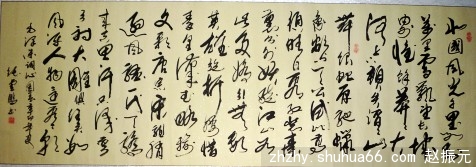 北国风光千里冰封
万里雪飘望长城
内外惟余莽莽大
河上下顿失滔滔山
舞银蛇原驰蜡
象欲与天公试比高
须晴日看红装素
裹分外妖娆江山如
此多娇引无数
英雄竞折腰惜
秦皇汉武略输
文采唐宗宋祖稍
逊风骚一代天骄
成吉思汗只识弯弓
射大雕俱往矣数
风流人物还看今朝
毛泽东词沁园春雪
zhzhy.shuhua66.com 赵振元